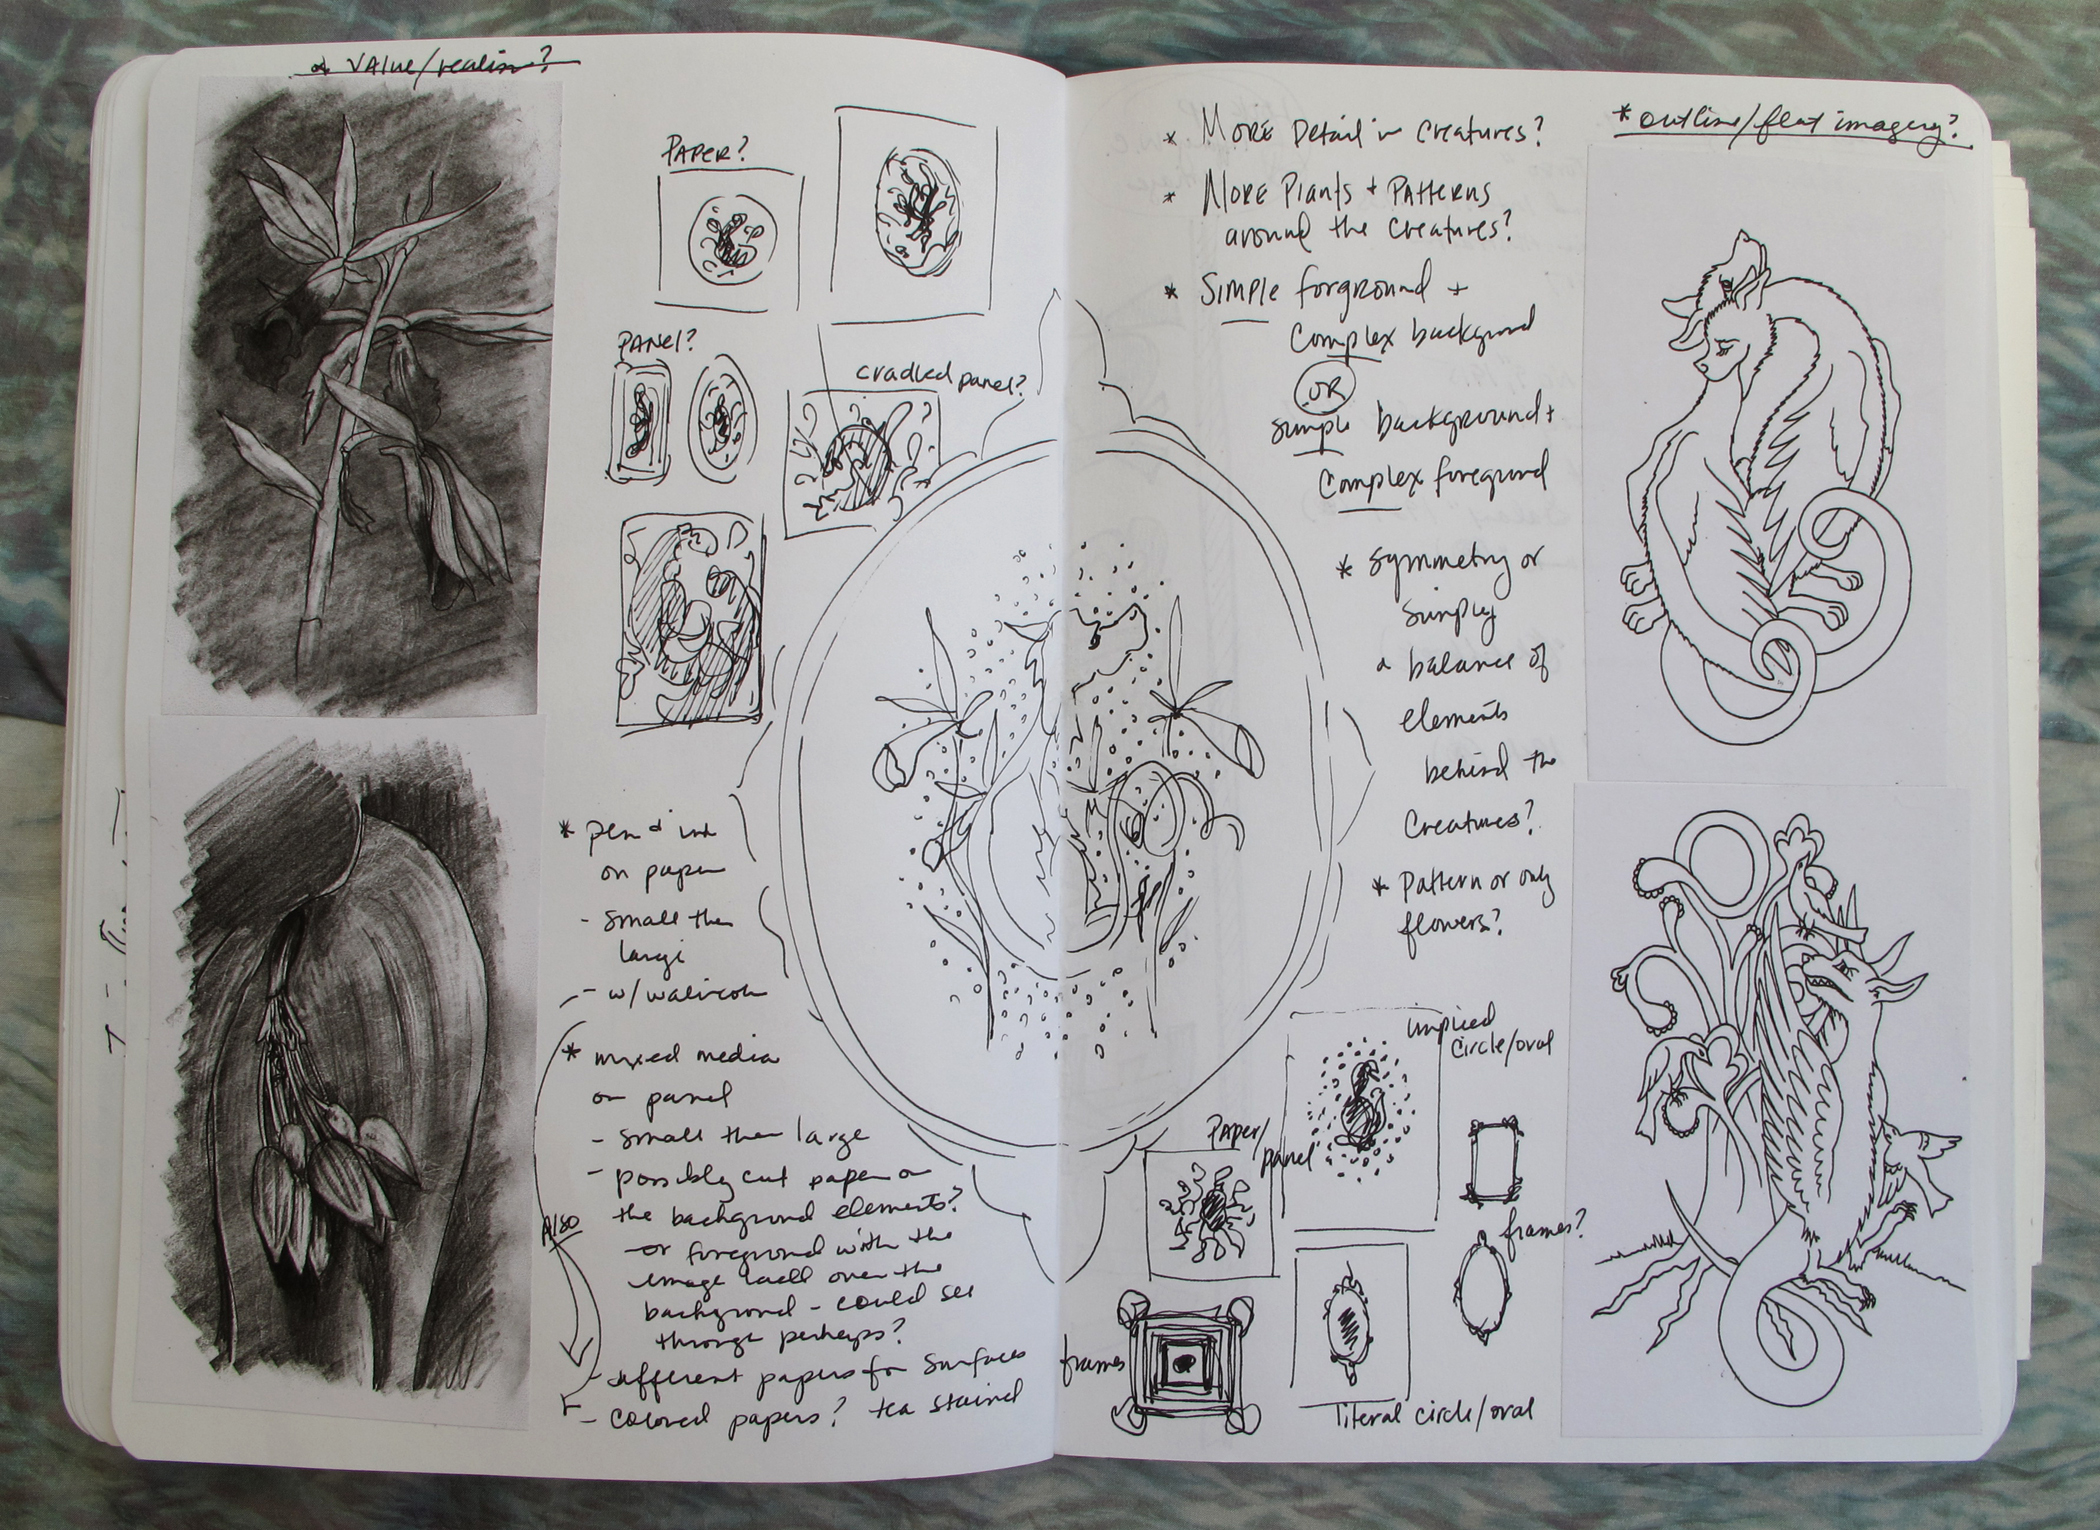 * VALUE/realism?
PAPER?
PANEL?
cradled panel?
* pen & ink
on paper
- small then
large
- w/watercolor
* mixed media
on panel
- small then large
- possibly cut paper on
the background elements?
- or foreground with the
image itself over the
background - could see
through perhaps?
Also
- different papers for surfaces
- colored papers? tea stained
* More Detail in Creatures?
* More Plants + Patterns
around the Creatures?
* Simple forground +
Complex background
OR
simple background +
Complex foreground
* symmetry or
simply
a balance of
elements
behind the
Creatures?
* Pattern or only
flowers?
implied
circle/oval
Paper/
panel
frames?
frames
literal circle/oval
* outline/flat imagery?